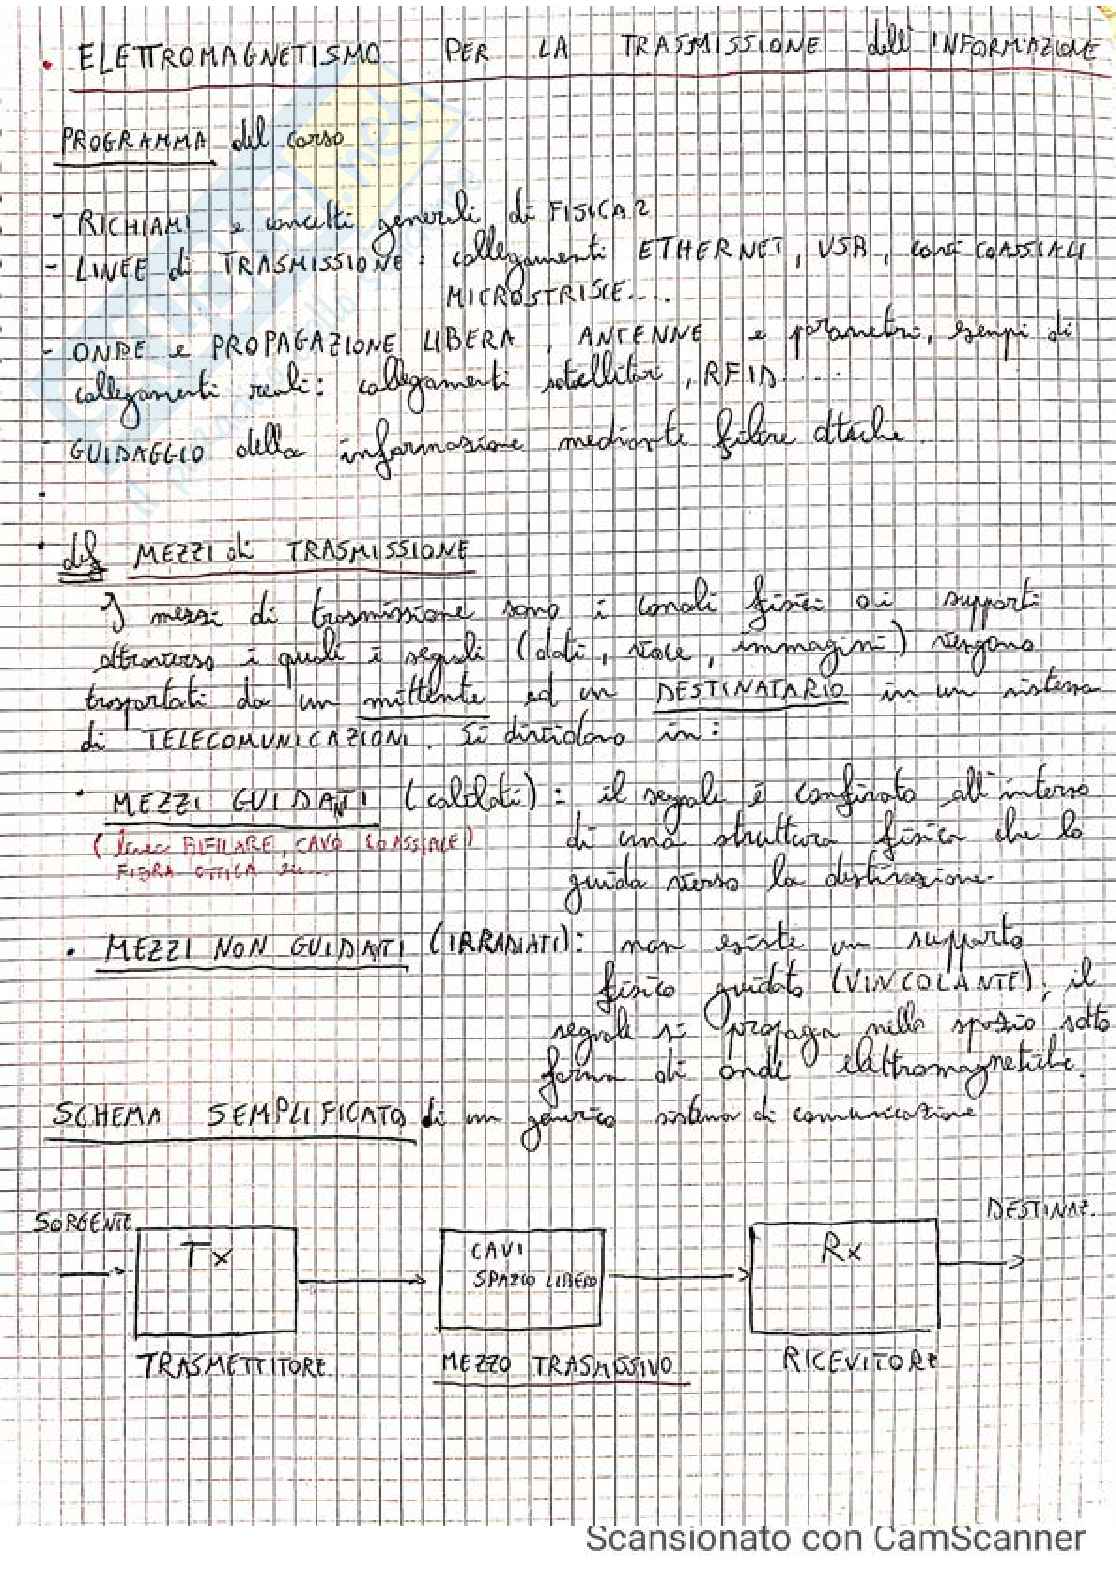 • ELETTROMAGNETISMO PER LA TRASMISSIONE dell'INFORMAZIONE
PROGRAMMA del corso
- RICHIAMI e concetti generali di FISICA 2
- LINEE di TRASMISSIONE: collegamenti ETHERNET, USB, cavi COASSIALI
MICROSTRISCE....
- ONDE e PROPAGAZIONE LIBERA, ANTENNE e parametri, esempi di
collegamenti reali: collegamenti satellitari, RFID....
- GUIDAGGIO della informazione mediante fibre ottiche
def MEZZI di TRASMISSIONE
I mezzi di trasmissione sono i canali fisici o i supporti
attraverso i quali i segnali (dati, voce, immagini) vengono
trasportati da un mittente ad un DESTINATARIO in un sistema
di TELECOMUNICAZIONI. Si dividono in:
• MEZZI GUIDATI (cablati): il segnale è confinato all'interno
(linea BIFILARE, CAVO COASSIALE) di una struttura fisica che lo
FIBRA OTTICA guida verso la destinazione.
• MEZZI NON GUIDATI (IRRADIATI): non esiste un supporto
fisico guidato (VINCOLANTE); il
segnale si propaga nello spazio sotto
forma di onde elettromagnetiche.
SCHEMA SEMPLIFICATO di un generico sistema di comunicazione
SORGENTE DESTINAZ.
Tx CAVI Rx
SPAZIO LIBERO
TRASMETTITORE MEZZO TRASMISSIVO RICEVITORE
Scansionato con CamScanner